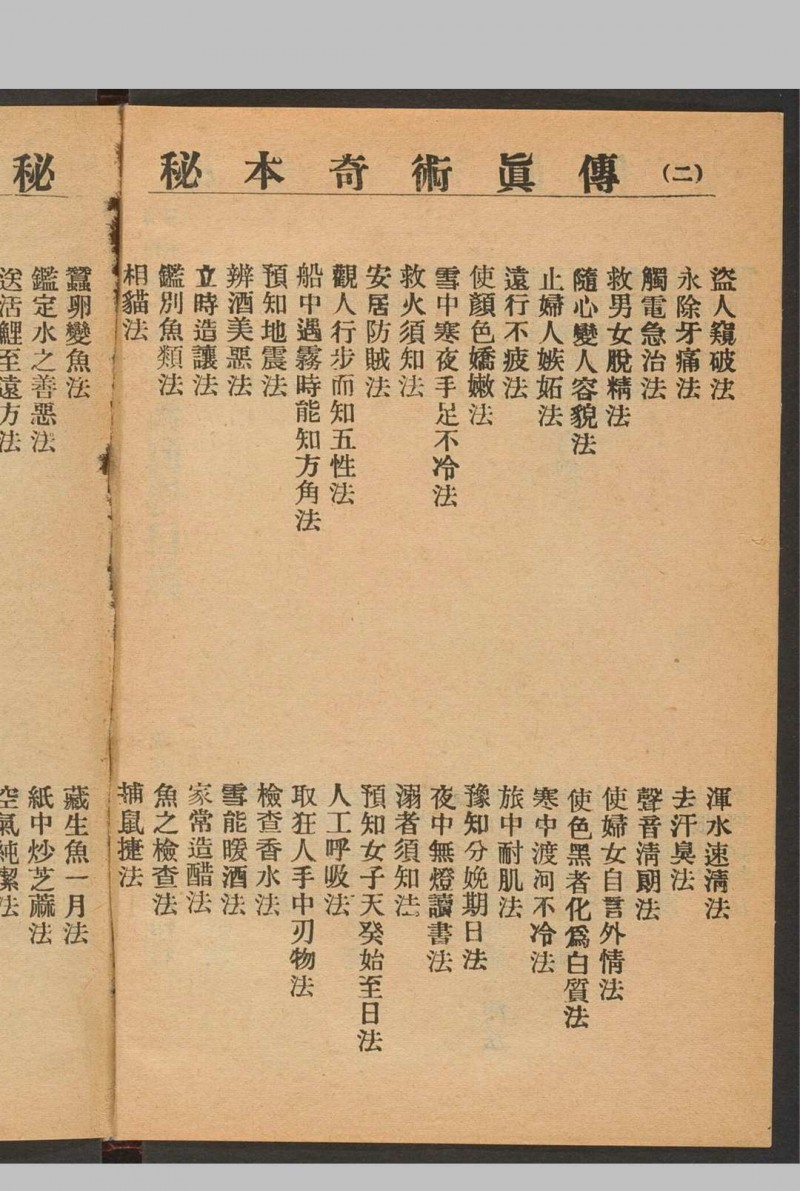 秘本奇術眞傳(二)
盜人窺破法
永除牙痛法
觸電急治法
救男女脫精法
隨心變人容貌法
止婦人嫉妬法
遠行不疲法
使顏色嬌嫩法
雪中寒夜手足不冷法
救火須知法
安居防賊法
觀人行步而知五性法
船中遇霧時能知方角法
預知地震法
辨酒美惡法
立時造讓法
鑑別魚類法
相貓法
渾水速清法
去汗臭法
聲音清朗法
使婦女自言外情法
使色黑者化爲白質法
寒中渡河不冷法
旅中耐肌法
豫知分娩期日法
夜中無燈讀書法
溺者須知法
預知女子天癸始至日法
人工呼吸法
取狂人手中刃物法
檢查香水法
雪能暖酒法
家常造醋法
魚之檢查法
捕鼠捷法
秘
蠶卵變魚法
鑑定水之善惡法
送活鯉至遠方法
藏生魚一月法
紙中炒芝蔴法
空氣純潔法